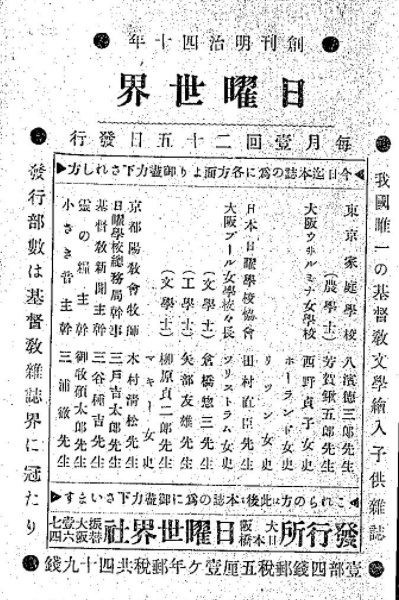 創刊明治四十年
日曜世界
毎月壹回二十五日發行
我國唯一の基督敎文學繪入子供雜誌
今日迄本誌の爲に各方面より御盡力下されし方
東京家庭學校 八濱德三郎先生
（農學士） 芳賀鍬五郎先生
大阪ウヰルミナ女學校 西野貞子女史
ホーランド女史
リッソン女史
日本日曜學校協會 田村直臣先生
大阪プール女學校々長 ツリストラム女史
（文學士） 倉橋惣三先生
（工學士） 矢部友雄先生
（文學士） 柳原貞二郎先生
マキー女史
京都陽敎會牧師 木村清松先生
日曜學校總務局幹事 三戸吉太郎先生
基督敎新聞主幹 三谷種吉先生
靈の糧主幹 御牧碩太郎先生
小さき音主幹 三浦徹先生
これらの方は此後も本誌の爲に御盡力下さいます
發行所 大阪日本橋 日曜世界社 振替大阪壹六七四
壹部四錢郵税五厘壹ケ年郵税共四十九錢
發行部數は基督敎雜誌界に冠たり